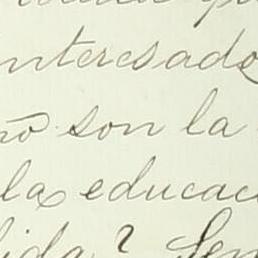 nteresado
no son la
la educac
ida? Sen